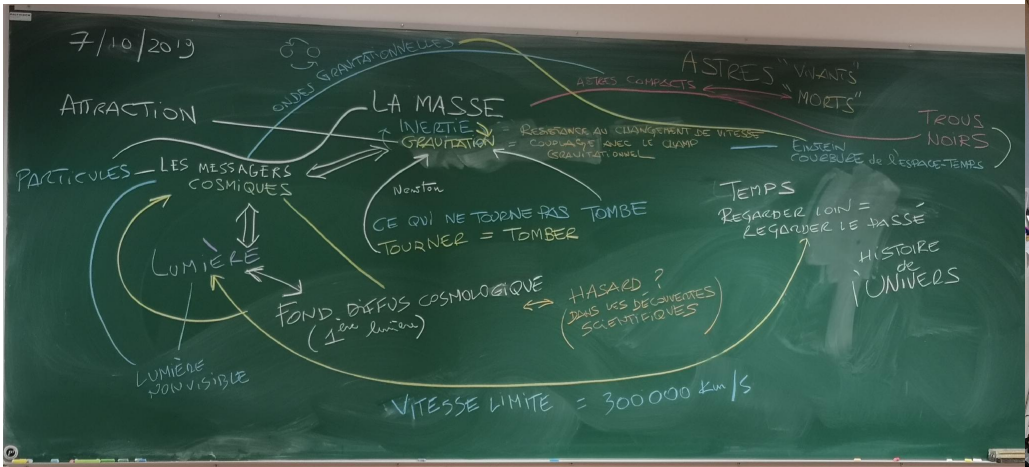 7/10/2019
ONDES GRAVITATIONNELLES
ASTRES "VIVANTS"
"MORTS"
ASTRES COMPACTS
ATTRACTION
LA MASSE
INERTIE = RESISTANCE AU CHANGEMENT DE VITESSE
GRAVITATION = COUPLAGE AVEC LE CHAMP
GRAVITATIONNEL
TROUS
NOIRS
EINSTEIN
COURBURE de l'ESPACE-TEMPS
PARTICULES
LES MESSAGERS
COSMIQUES
Newton
CE QUI NE TOURNE PAS TOMBE
TOURNER = TOMBER
TEMPS
REGARDER LOIN =
REGARDER LE PASSÉ
HISTOIRE
de
l'UNIVERS
LUMIÈRE
FOND DIFFUS COSMOLOGIQUE
(1ère lumière)
HASARD ?
(DANS LES DÉCOUVERTES
SCIENTIFIQUES)
LUMIÈRE
NON VISIBLE
VITESSE LIMITE = 300000 Km/S